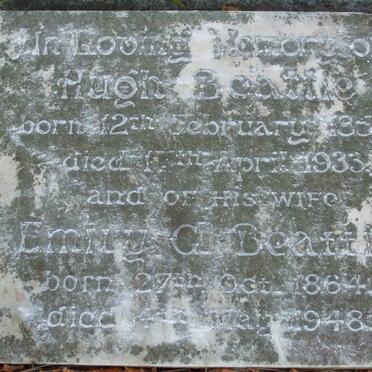 In Loving Memory of
Hugh Beattie
born 12th February
died 17th April 1933
and of his wife
Emily G. Beattie
born 27th Oct. 1864
died 4th May 1948